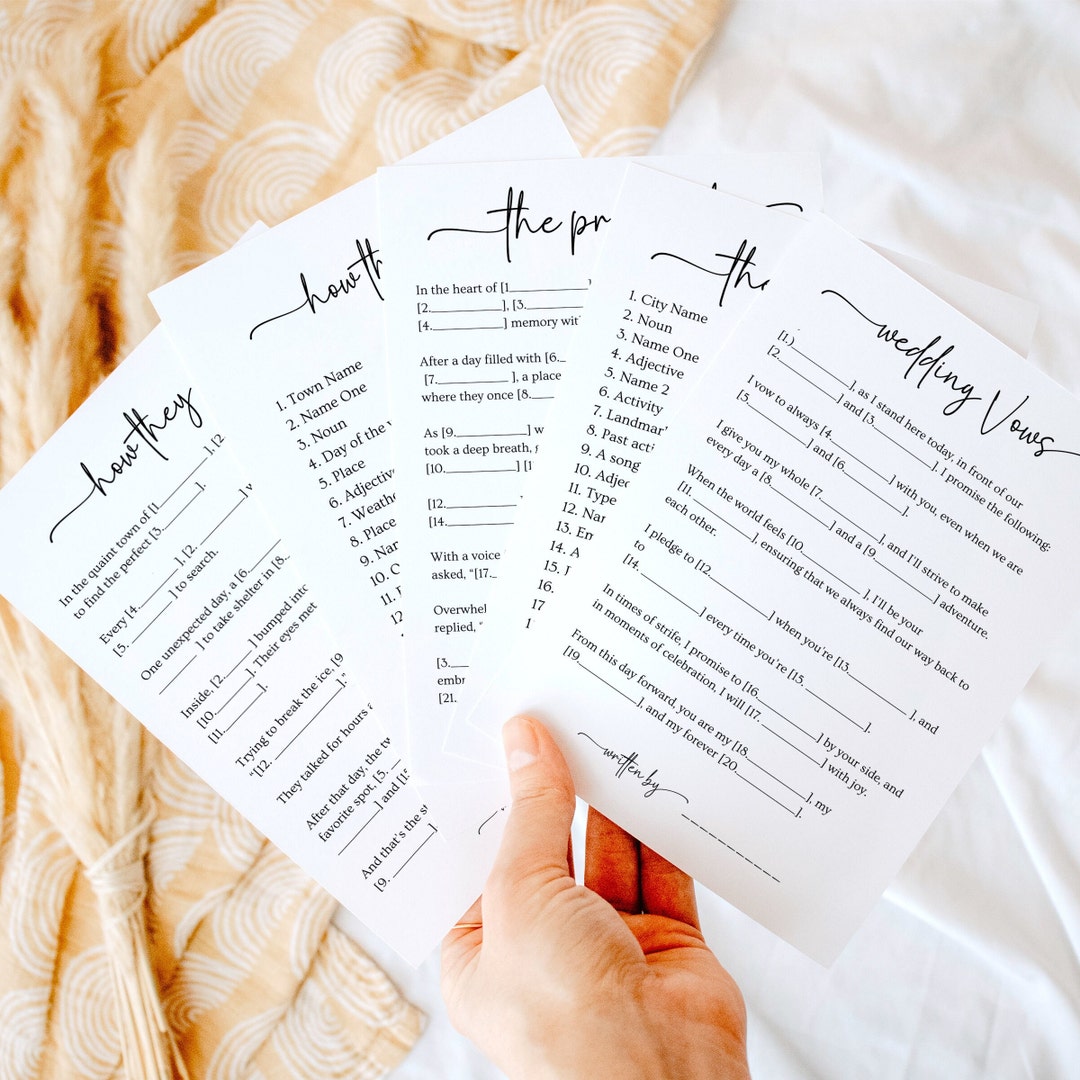 how they
In the quaint town of [1.________], [2
to find the perfect [3.________].
Every [4.________], [2.________]
[5.________] to search.
One unexpected day, a [6.________
________] to take shelter in [8.
Inside, [2.________] bumped into
[10.________]. Their eyes met
[11.________].
Trying to break the ice, [9
"[12.________]."
They talked for hours
After that day, the tw
favorite spot, [5.____
________] and [
And that's the s
[9.________]
how th
1. Town Name
2. Name One
3. Noun
4. Day of the
5. Place
6. Adjective
7. Weathe
8. Place
9. Nam
10.
11.
12
the pr
In the heart of [1.__________
[2.__________], [3.________
[4.__________] memory wit
After a day filled with [6._
[7.__________], a place
where they once [8.____
As [9.__________] w
took a deep breath,
[10.__________] [1
[12.__________
[14.__________
With a voice
asked, "[17._
Overwhel
replied, "
[3.___
emb
[21.
the
1. City Name
2. Noun
3. Name One
4. Adjective
5. Name 2
6. Activity
7. Landmar
8. Past acti
9. A song
10. Adjec
11. Type
12. Nam
13. Em
14. A
15.
16.
17
1
wedding Vows
[1.)________], as I stand here today, in front of our
[2.__________] and [3.__________], I promise the following:
I vow to always [4.__________] with you, even when we are
[5.__________] and [6.__________].
I give you my whole [7.__________], and I'll strive to make
every day a [8.__________] and a [9.__________] adventure.
When the world feels [10.__________], I'll be your
[11.__________], ensuring that we always find our way back to
each other.
I pledge to [12.__________] when you're [13.__________], and
to
[14.__________] every time you're [15.__________].
In times of strife, I promise to [16.__________] by your side, and
in moments of celebration, I will [17.__________] with joy.
From this day forward, you are my [18.__________], my
[19.__________], and my forever [20.__________].
written by